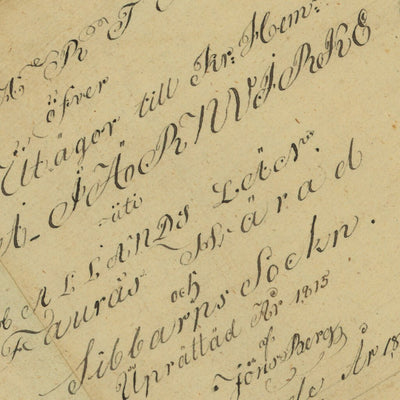 öfver
Utägor till Kr: Hem:
A- JÄRNVIRKE
uti
HALLANDS LÄEN
Faurås Härad
och
Sibbarps Sockn.
Upprättad År 1815
af
Jöns Berg
År 18